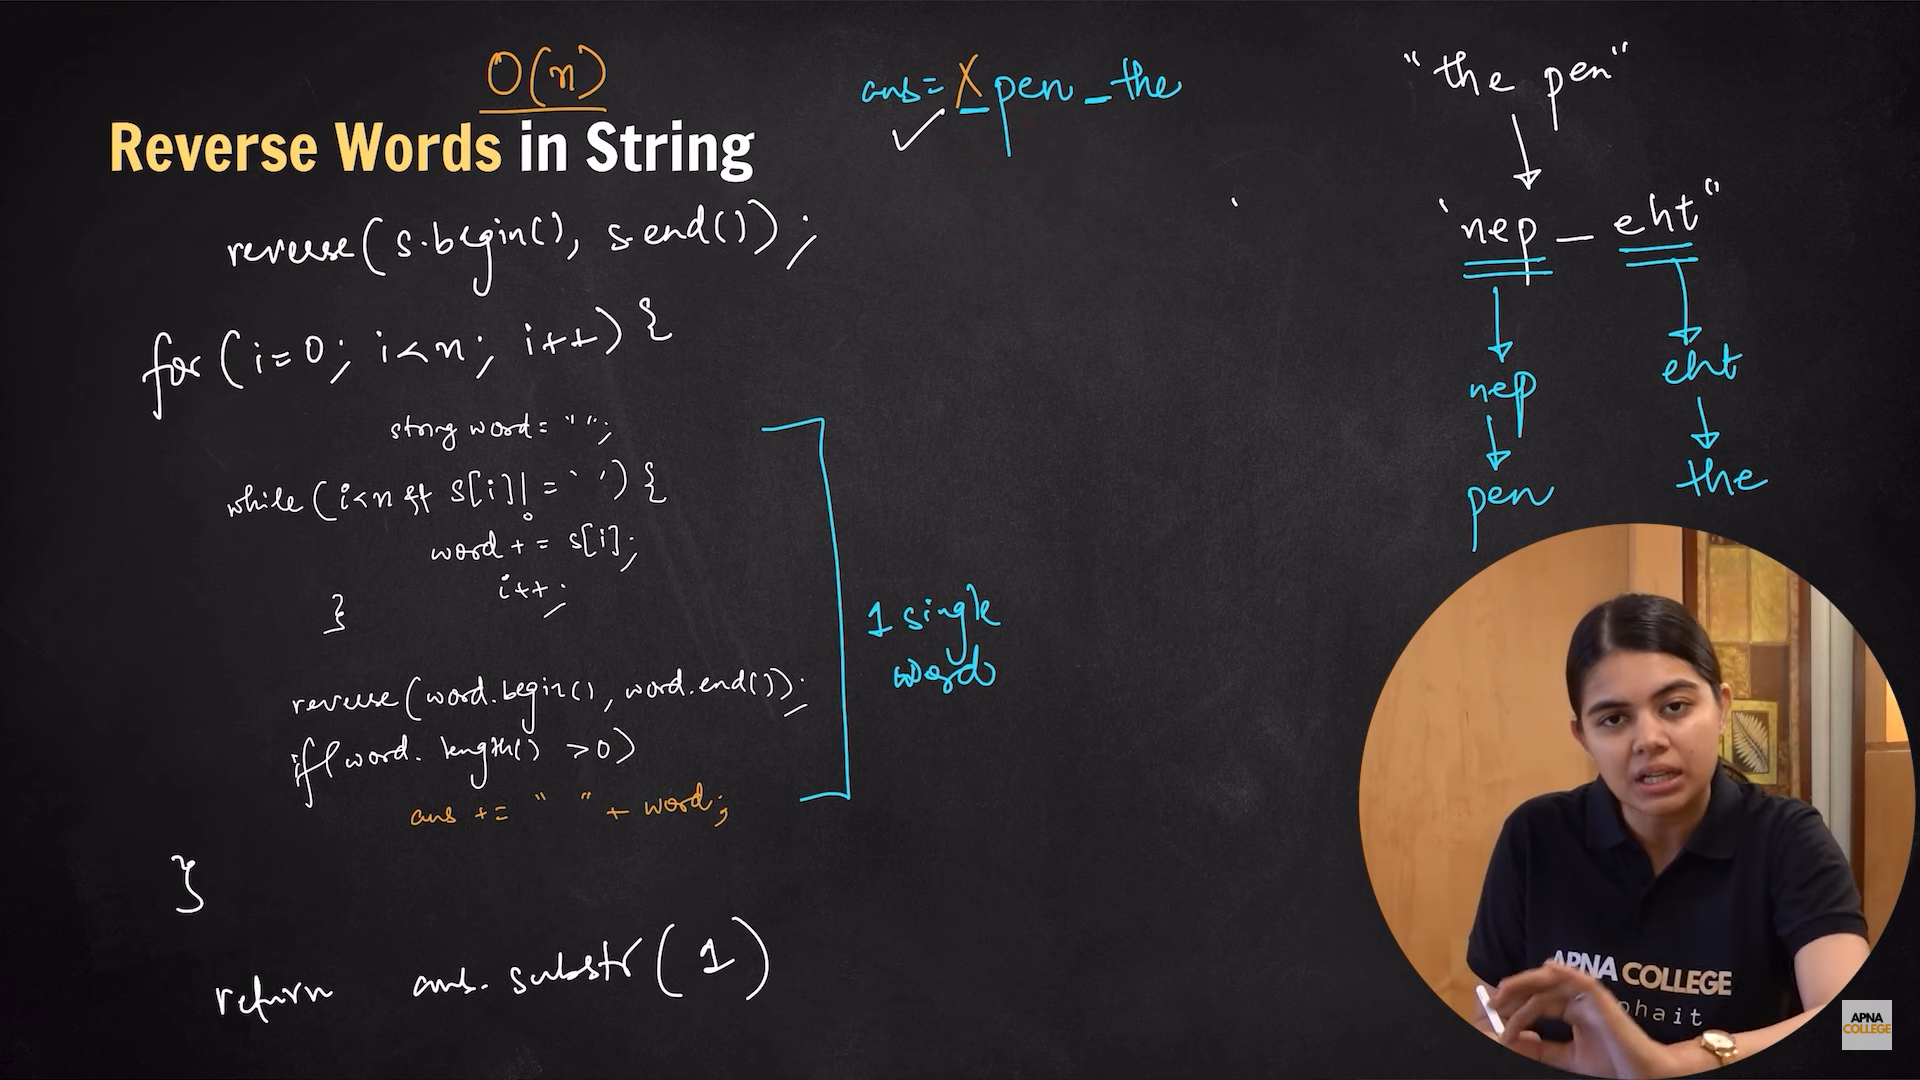 O(n)
Reverse Words in String
reverse(s.begin(), s.end());
for (i=0; i<n; i++) {
string word = "";
while (i<n && s[i] != ' ') {
word += s[i];
i++;
}
reverse(word.begin(), word.end());
if(word.length() >0)
ans += " " + word;
}
return ans.substr(1)
1 single
word
ans= X pen _ the
"the pen"
"nep _ eht"
nep eht
pen the
APNA COLLEGE
APNA
COLLEGE